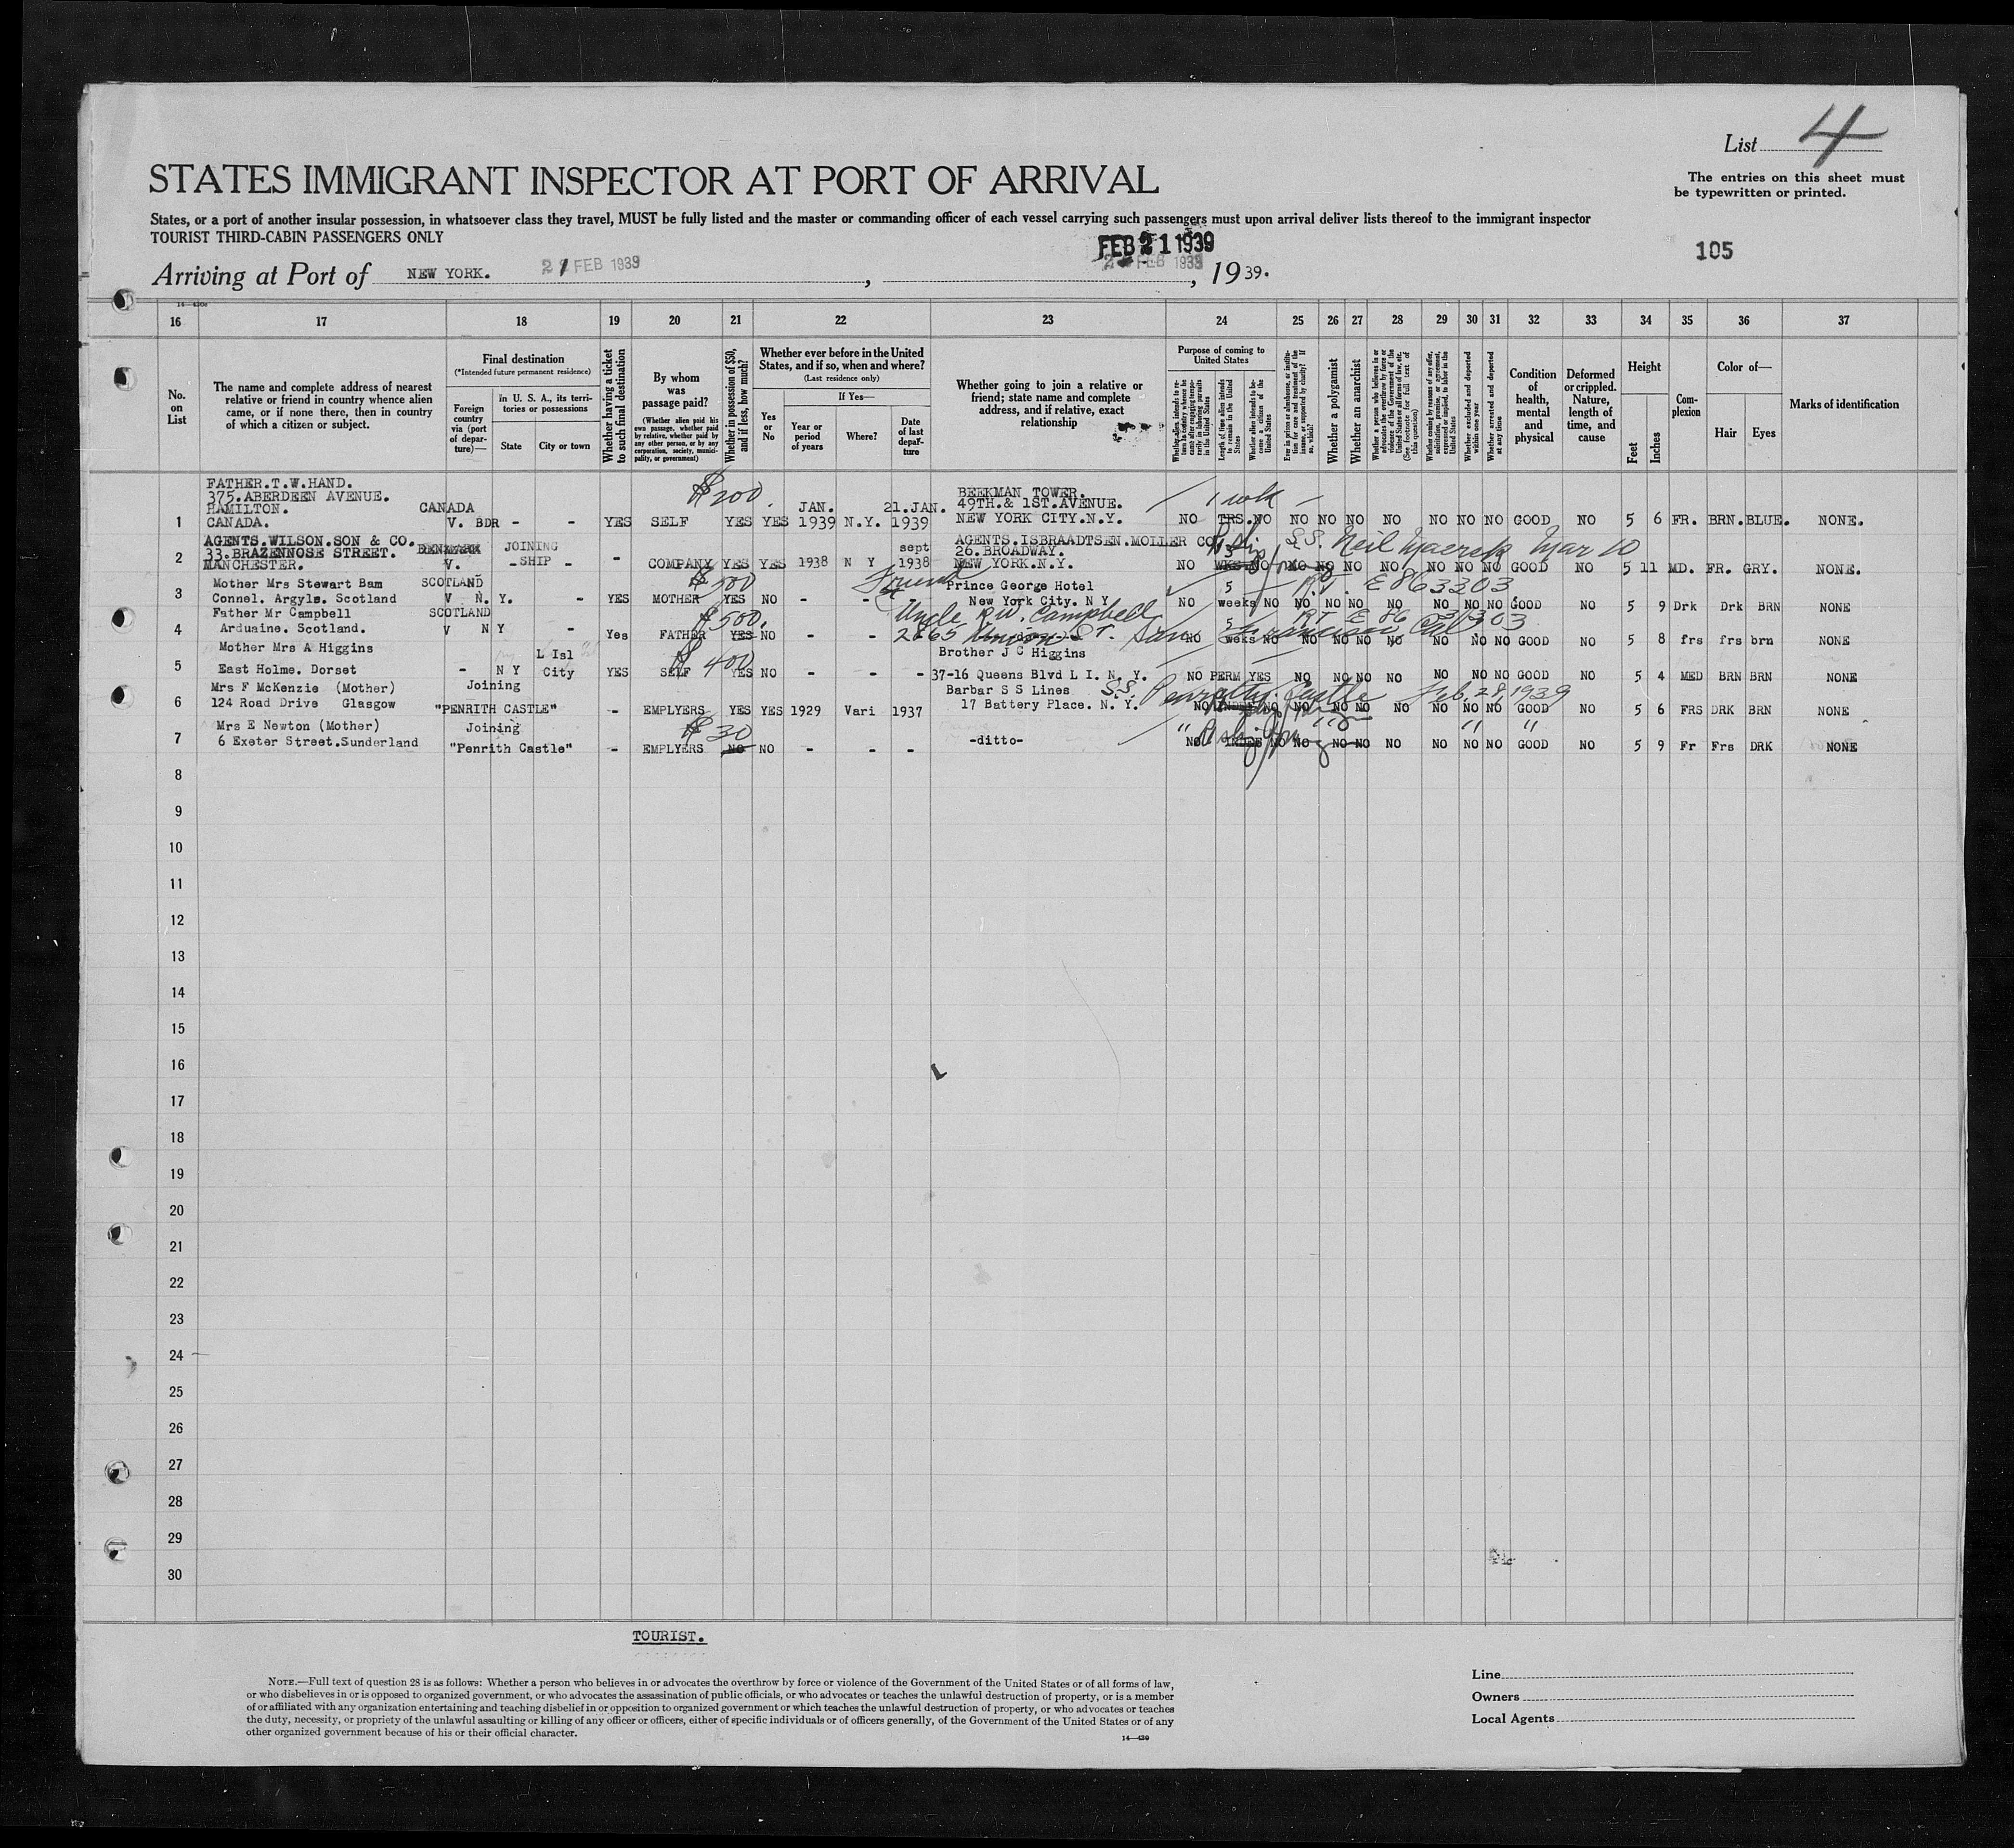 List 4
The entries on this sheet must
be typewritten or printed.
STATES IMMIGRANT INSPECTOR AT PORT OF ARRIVAL
States, or a port of another insular possession, in whatsoever class they travel, MUST be fully listed and the master or commanding officer of each vessel carrying such passengers must upon arrival deliver lists thereof to the immigrant inspector
TOURIST THIRD-CABIN PASSENGERS ONLY
FEB 21 1939
105
Arriving at Port of NEW YORK. 21 FEB 1939, 1939.
16 17 18 19 20 21 22 23 24 25 26 27 28 29 30 31 32 33 34 35 36 37
No. on List
The name and complete address of nearest relative or friend in country whence alien came, or if none there, then in country of which a citizen or subject.
Final destination
(*Intended future permanent residence)
Foreign country via (port of departure)—
in U. S. A., its territories or possessions
State
City or town
Whether having a ticket to such final destination
By whom was passage paid?
(Whether alien paid his own passage, whether paid by relative, whether paid by any other person, or by any corporation, society, municipality, or government)
Whether in possession of $50, and if less, how much?
Whether ever before in the United States, and if so, when and where?
(Last residence only)
Yes or No
If Yes—
Year or period of years
Where?
Date of last departure
Whether going to join a relative or friend; state name and complete address, and if relative, exact relationship
Purpose of coming to United States
Length of time alien intends to remain in the United States
Whether alien intends to become a citizen of the United States
Whether a polygamist
Whether an anarchist
Whether excluded and deported within one year
Whether arrested and deported at any time
Condition of health, mental and physical
Deformed or crippled. Nature, length of time, and cause
Height
Feet
Inches
Complexion
Color of—
Hair
Eyes
Marks of identification
FATHER.T.W.HAND.
375.ABERDEEN AVENUE.
HAMILTON. CANADA $200 JAN. 21.JAN. BEEKMAN TOWER. 49TH.& 1ST.AVENUE. 1 wk
1 CANADA. V. BDR - - YES SELF YES YES 1939 N.Y. 1939 NEW YORK CITY.N.Y. NO NO NO NO NO NO NO NO NO GOOD NO 5 6 FR. BRN. BLUE. NONE.
AGENTS.WILSON.SON & CO. JOINING AGENTS.ISBRAADTSEN.MOLLER CO. S.S. Neil Maersk Mar 10
33.BRAZENNOSE STREET. DENMARK sept 26.BROADWAY.
2 MANCHESTER. V. -SHIP - - COMPANY YES YES 1938 N Y 1938 NEW YORK.N.Y. NO WKS NO NO NO NO NO NO NO NO GOOD NO 5 11 MD. FR. GRY. NONE.
Mother Mrs Stewart Bam SCOTLAND $500 Friend Prince George Hotel 5 R.T. E 863303
3 Connel. Argyls. Scotland V N. Y. - YES MOTHER YES NO - - - New York City. N Y NO weeks NO NO NO NO NO NO NO NO GOOD NO 5 9 Drk Drk BRN NONE
Father Mr Campbell SCOTLAND $500. Uncle R.W. Campbell 5
4 Arduaine. Scotland. V N Y - Yes FATHER YES NO - - 2865 Union St. San Francisco Cal NO weks NO NO NO NO NO NO NO NO GOOD NO 5 8 frs frs brn NONE
Mother Mrs A Higgins L Isl $400 Brother J C Higgins
5 East Holme. Dorset - N Y City YES SELF YES NO - - - 37-16 Queens Blvd L I. N. Y. NO PERM YES NO NO NO NO NO NO NO GOOD NO 5 4 MED BRN BRN NONE
Mrs F McKenzie (Mother) Joining Barbar S S Lines S.S. Penrith Castle Feb. 28, 1939
6 124 Road Drive Glasgow "PENRITH CASTLE" - EMPLYERS YES YES 1929 Vari 1937 17 Battery Place. N. Y. NO NO NO NO NO NO NO NO NO GOOD NO 5 6 FRS DRK BRN NONE
Mrs E Newton (Mother) Joining $30 " " " "
7 6 Exeter Street.Sunderland "Penrith Castle" - EMPLYERS NO NO - - - -ditto- NO NO NO NO NO NO NO NO NO GOOD NO 5 9 Fr Frs DRK NONE
8
9
10
11
12
13
14
15
16
17
18
19
20
21
22
23
24
25
26
27
28
29
30
TOURIST.
NOTE.—Full text of question 28 is as follows: Whether a person who believes in or advocates the overthrow by force or violence of the Government of the United States or of all forms of law,
or who disbelieves in or is opposed to organized government, or who advocates the assassination of public officials, or who advocates or teaches the unlawful destruction of property, or is a member
of or affiliated with any organization entertaining and teaching disbelief in or opposition to organized government or which teaches the unlawful destruction of property, or who advocates or teaches
the duty, necessity, or propriety of the unlawful assaulting or killing of any officer or officers, either of specific individuals or of officers generally, of the Government of the United States or of any
other organized government because of his or their official character.
14—420
Line
Owners
Local Agents